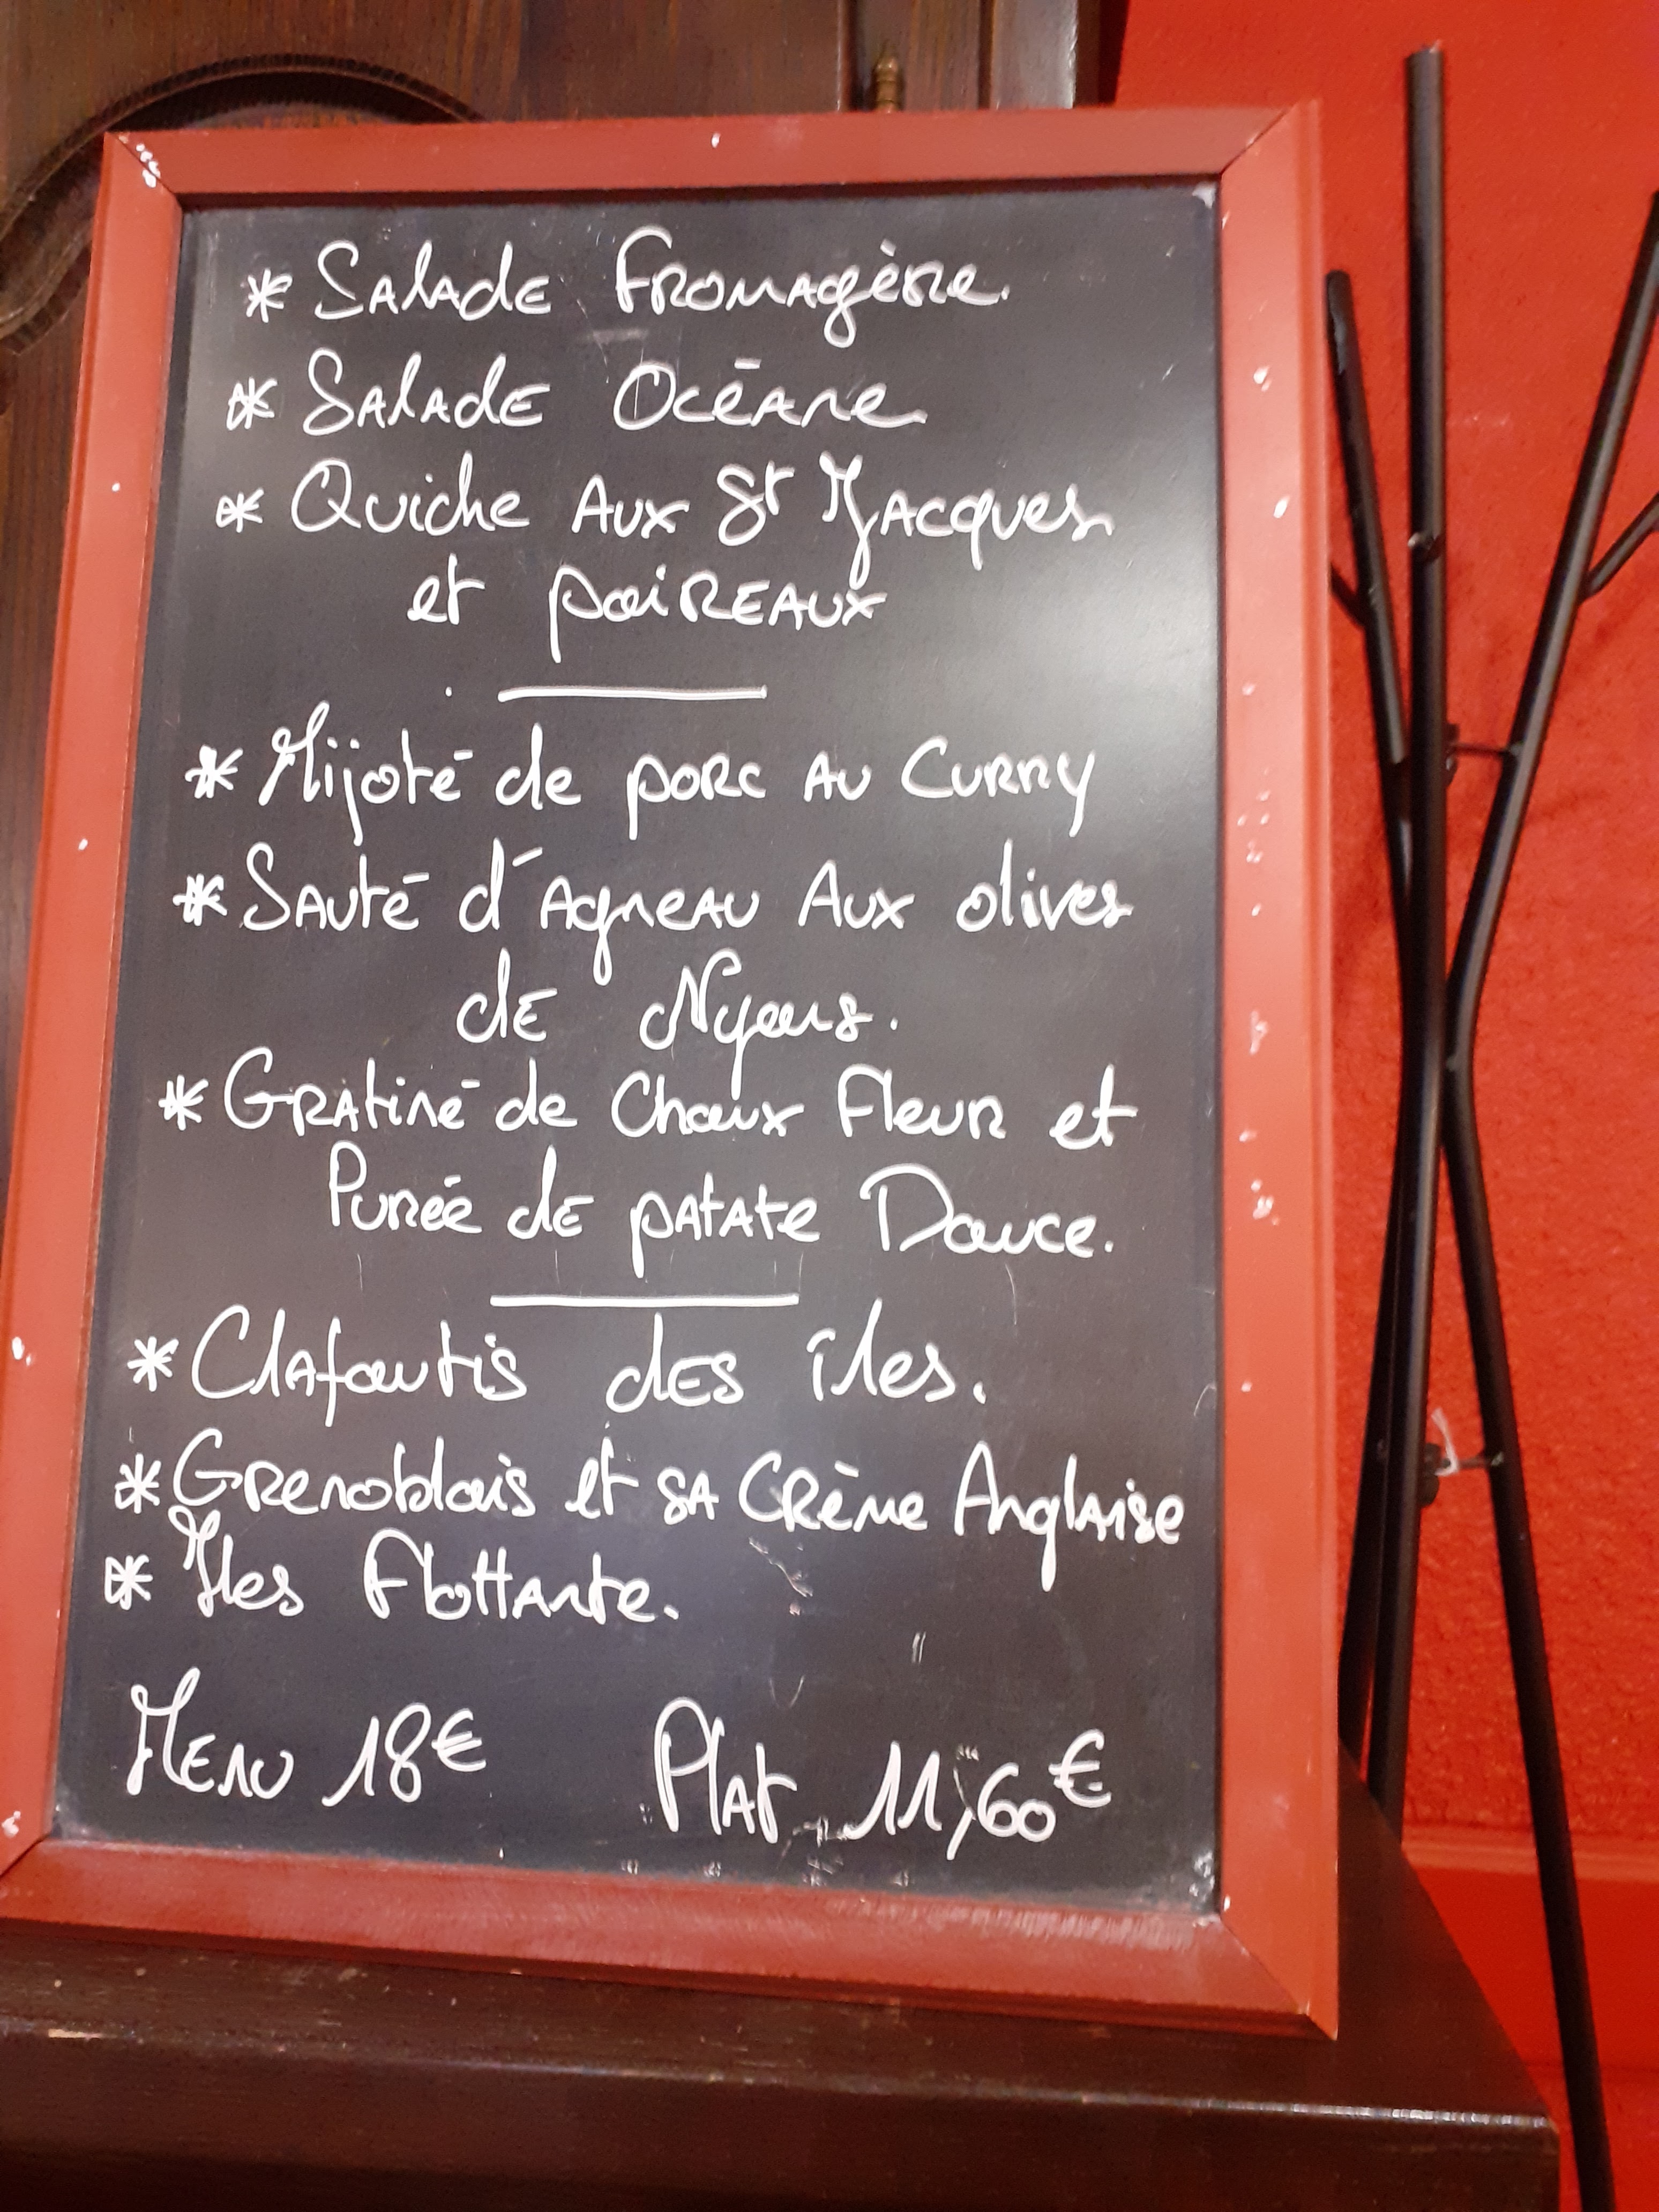 * Salade Fromagère.
* Salade Océane
* Quiche aux St Jacques
et poireaux
* Mijoté de porc au Curry
* Sauté d'Agneau Aux olives
de Nyons.
* Gratiné de Choux Fleur et
Purée de patate Douce.
* Clafoutis des îles.
* Grenoblois et sa Crème Anglaise
* Iles Flottante.
Menu 18€ Plat 11,60€